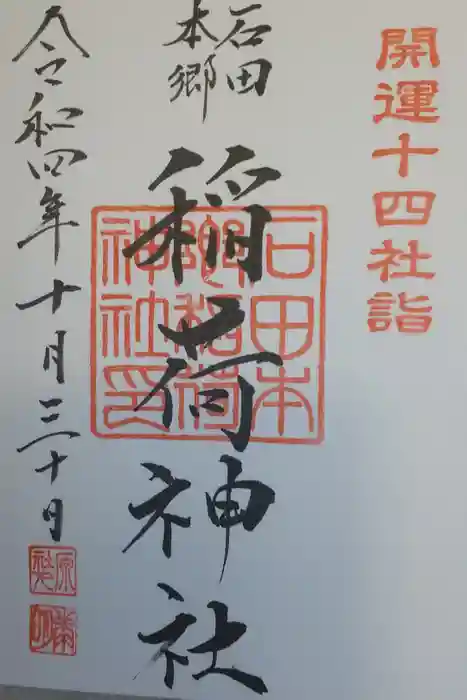 開運十四社詣
石田
本郷
稲荷神社
石田本
郷稲荷
神社印
令和四年十月三十日